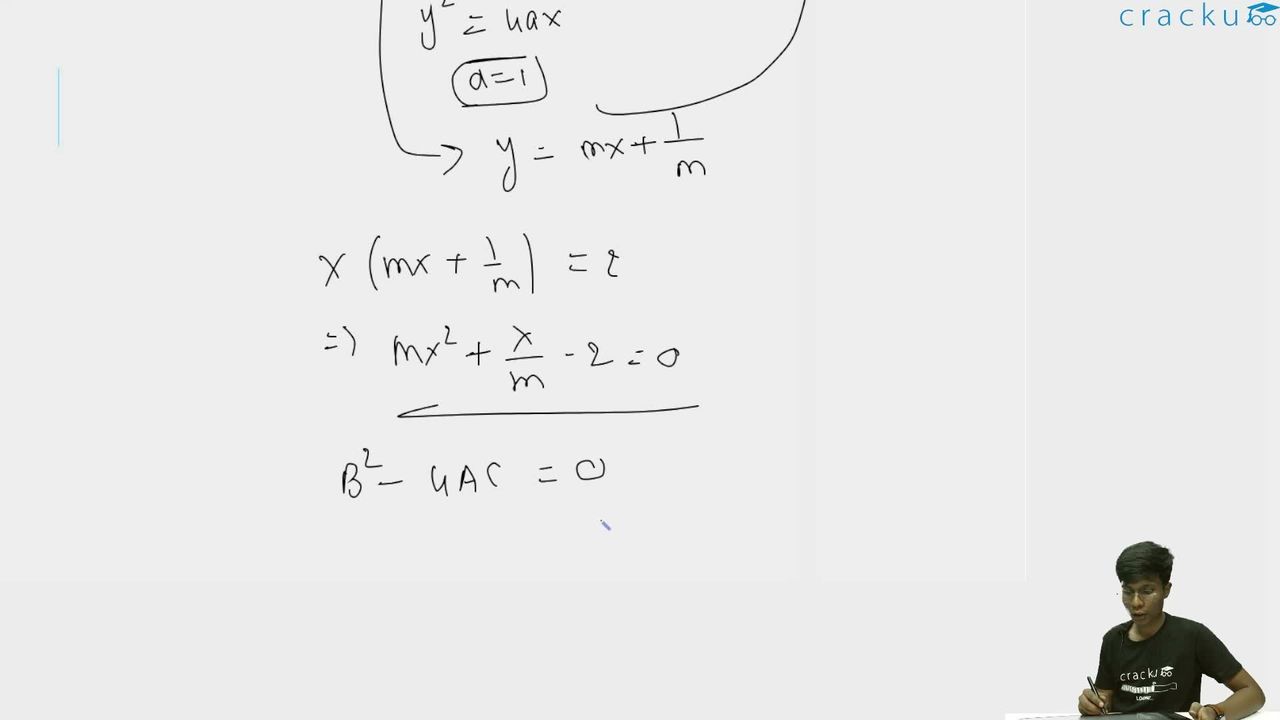 cracku
y² = 4ax
a=1
y = mx + 1/m
x (mx + 1/m) = 2
=) mx² + x/m - 2 = 0
B² - 4AC = 0
cracku